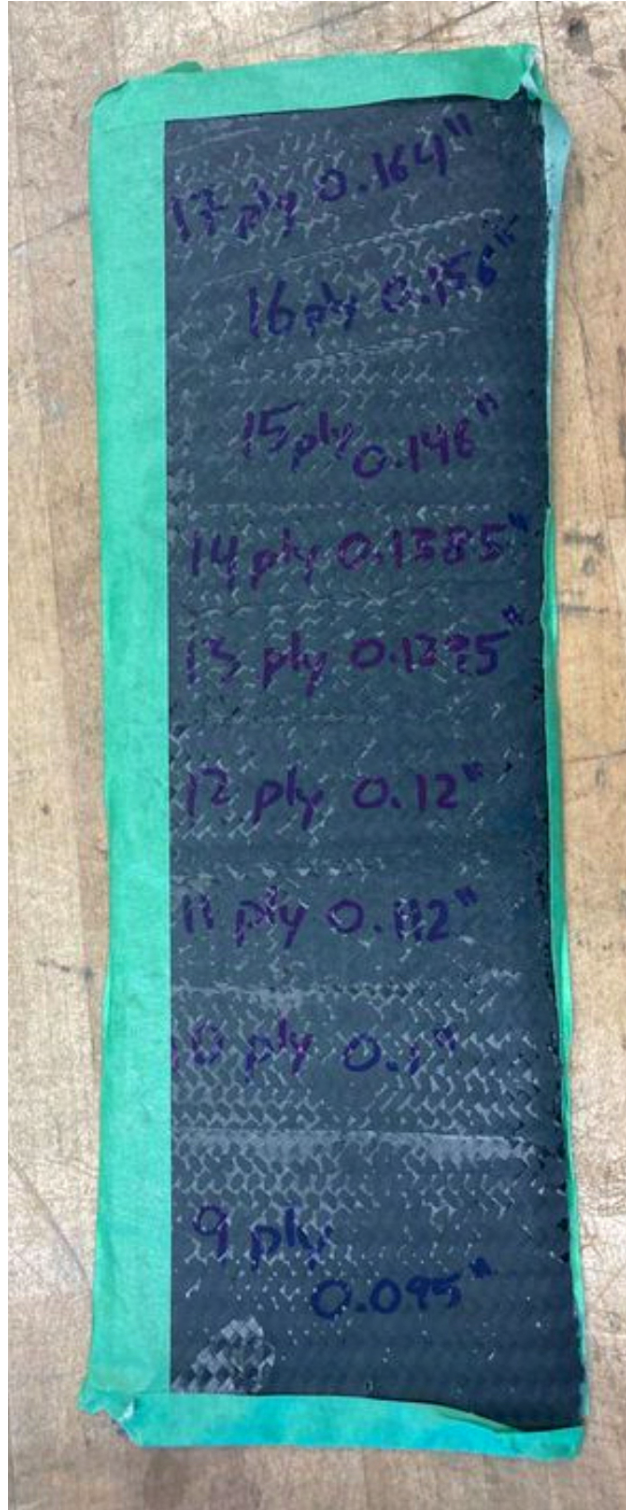 17 ply 0.164"
16 ply 0.156"
15 ply 0.148"
14 ply 0.1385"
13 ply 0.1295"
12 ply 0.12"
11 ply 0.112"
10 ply 0.1"
9 ply
0.095"